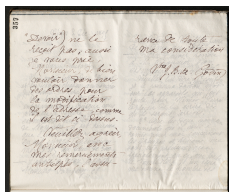 reçoit pas, aussi
je vous prie
Monsieur, de bien
vouloir donner
des ordres pour
la modification
de l'adresse, comme
il est dit ci dessus.
Veuillez agréer
Monsieur, avec
mes remerciements
anticipés, l'assu-
rance de toute
ma considération